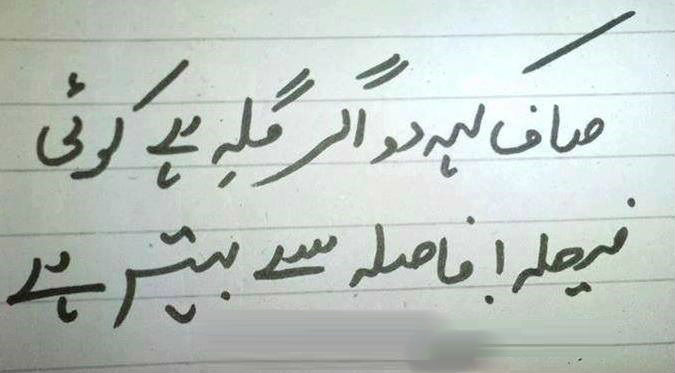 صاف کہہ دو اگر گلہ ہے کوئی
فیصلہ ! فاصلہ سے بہتر ہے